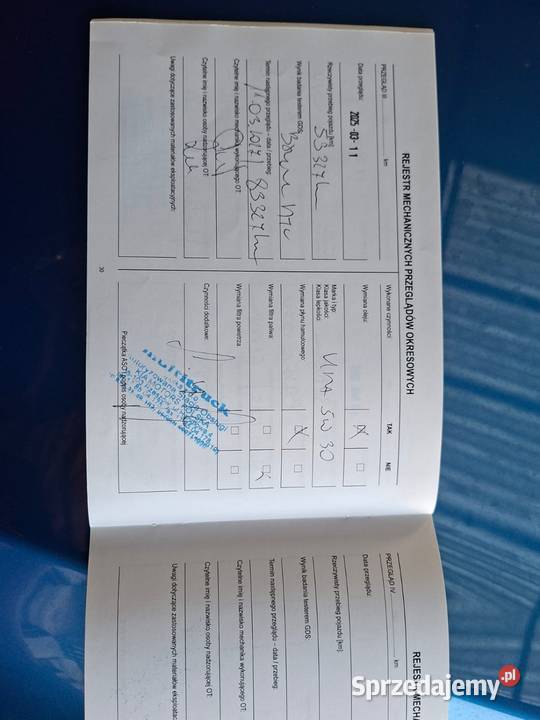 REJESTR MECHANICZNYCH PRZEGLĄDÓW OKRESOWYCH
PRZEGLĄD III. km
Data przeglądu: 2025-03-11
Rzeczywisty przebieg pojazdu [km]:
53327km
Wynik badania testerem GDS:
Termin następnego przeglądu – data / przebieg:
11.03.2027/ 83327km
Czytelne imię i nazwisko mechanika wykonującego OT:
Czytelne imię i nazwisko osoby nadzorującej OT:
Uwagi dotyczące zastosowanych materiałów eksploatacyjnych
Wykonane czynności TAK NIE
Wymiana oleju:
Marka i typ
Klasa jakości
Klasa lepkości
5W30
Wymiana płynu hamulcowego:
Wymiana filtra paliwa:
Wymiana filtra powietrza:
Czynności dodatkowe:
multitruck
Pieczątka ASO/Podpis osoby nadzorującej
30
REJESTR MECHA
PRZEGLĄD IV. km
Data przeglądu:
Rzeczywisty przebieg pojazdu [km]:
Wynik badania testerem GDS:
Termin następnego przeglądu – data / przebieg:
Czytelne imię i nazwisko mechanika wykonującego OT:
Czytelne imię i nazwisko osoby nadzorującej OT:
Uwagi dotyczące zastosowanych materiałów eksploatac
Sprzedajemy.pl